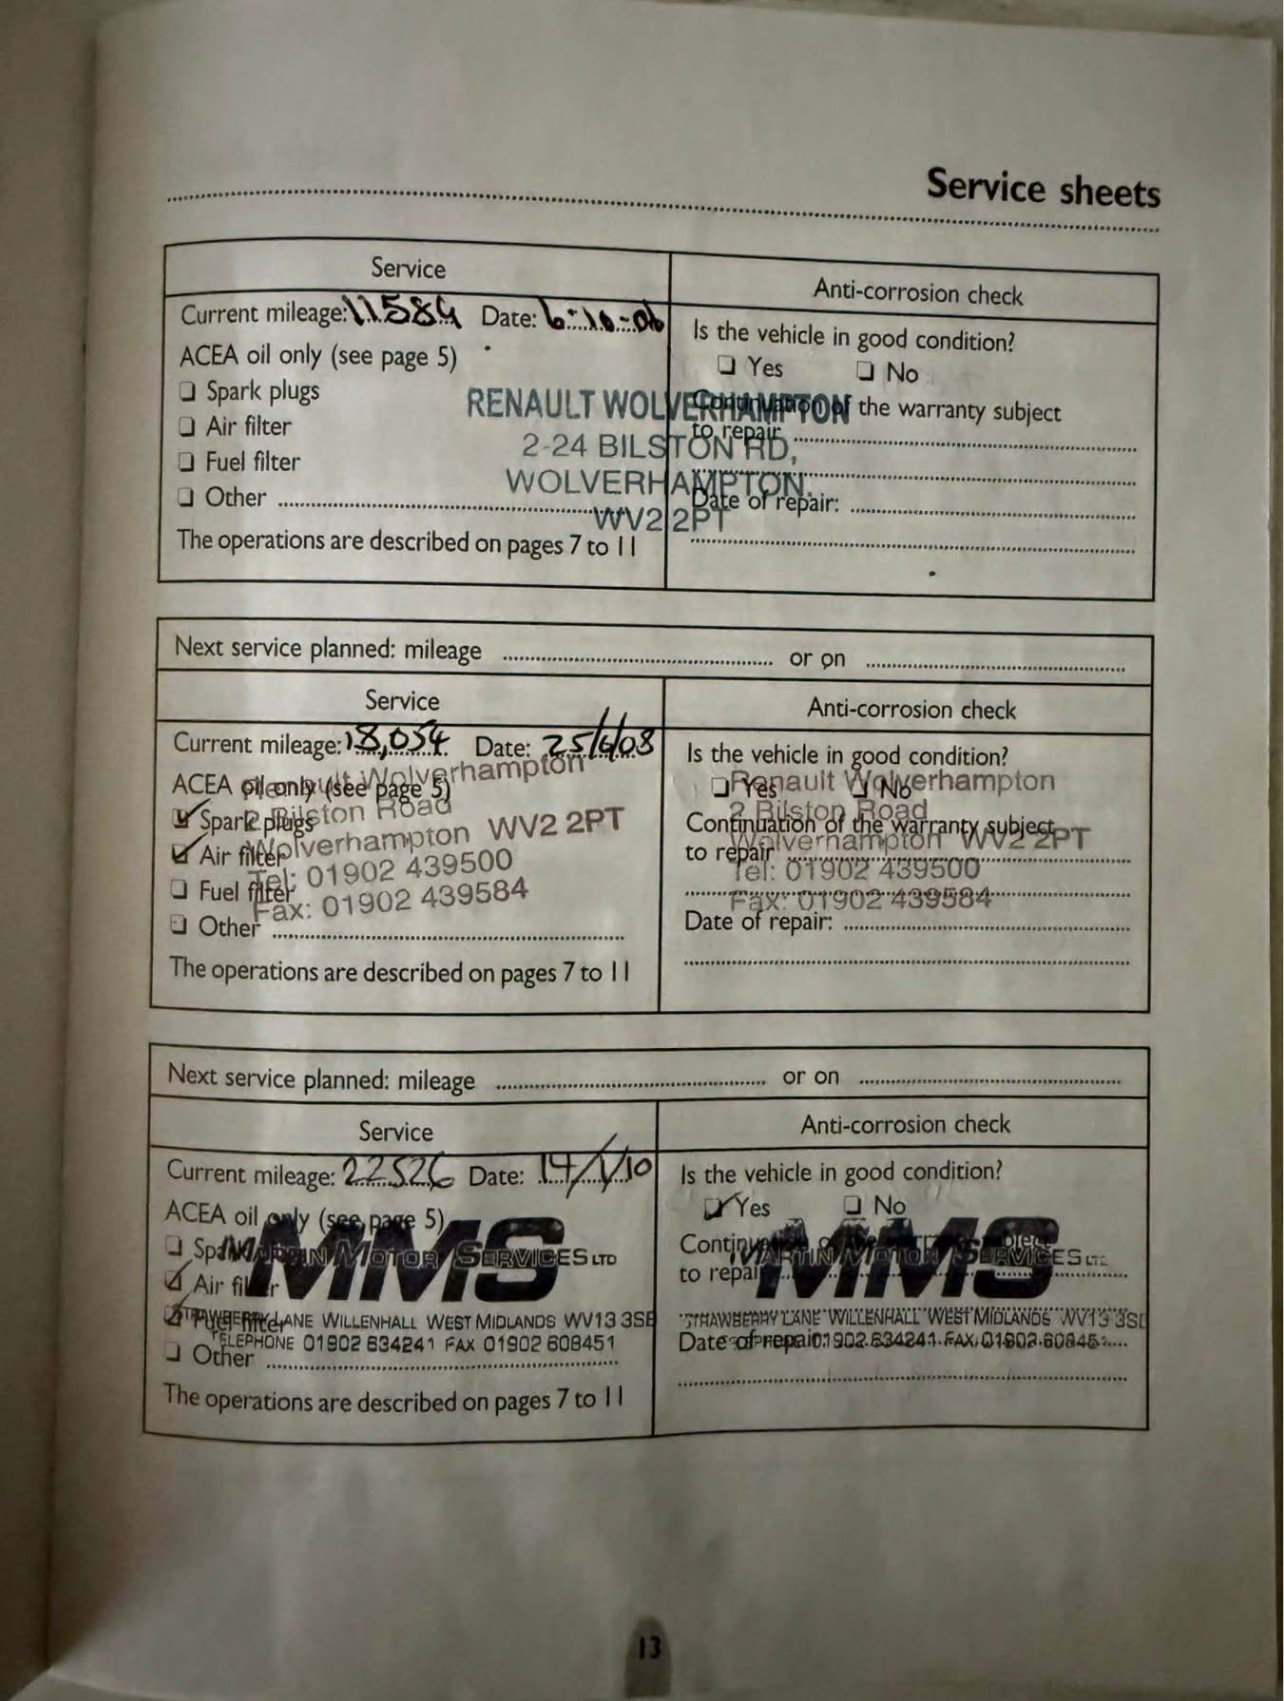 Service sheets
Service
Anti-corrosion check
Current mileage: 11584 Date: 6-10-06
Is the vehicle in good condition?
ACEA oil only (see page 5)
❏ Yes ❏ No
❏ Spark plugs
RENAULT WOLVERHAMPTON
Continuation of the warranty subject
❏ Air filter
to repair
2-24 BILSTON RD,
❏ Fuel filter
WOLVERHAMPTON.
❏ Other
Date of repair:
WV2 2PT
The operations are described on pages 7 to 11
Next service planned: mileage or on
Service
Anti-corrosion check
Current mileage: 18,054 Date: 25/6/08
Is the vehicle in good condition?
ACEA oil only (see page 5)
Renault Wolverhampton
❏ Yes ❏ No
Renault Wolverhampton
☑ Spark plugs
2 Bilston Road
2 Bilston Road
Continuation of the warranty subject
☑ Air filter
Wolverhampton WV2 2PT
to repair
Wolverhampton WV2 2PT
❏ Fuel filter
Tel: 01902 439500
Tel: 01902 439500
Fax: 01902 439584
Fax: 01902 439584
❏ Other
Date of repair:
The operations are described on pages 7 to 11
Next service planned: mileage or on
Service
Anti-corrosion check
Current mileage: 22526 Date: 14/1/10
Is the vehicle in good condition?
ACEA oil only (see page 5)
☑ Yes ❏ No
MMS
MARTIN MOTOR SERVICES LTD
MMS
MARTIN MOTOR SERVICES LTD
Continuation
to repair
☑ Air filter
☑ Fuel filter
STRAWBERRY LANE WILLENHALL WEST MIDLANDS WV13 3SE
STRAWBERRY LANE WILLENHALL WEST MIDLANDS WV13 3S
TELEPHONE 01902 634241 FAX 01902 608451
Date of repair:
01902 634241 FAX 01902 60845
❏ Other
The operations are described on pages 7 to 11
13